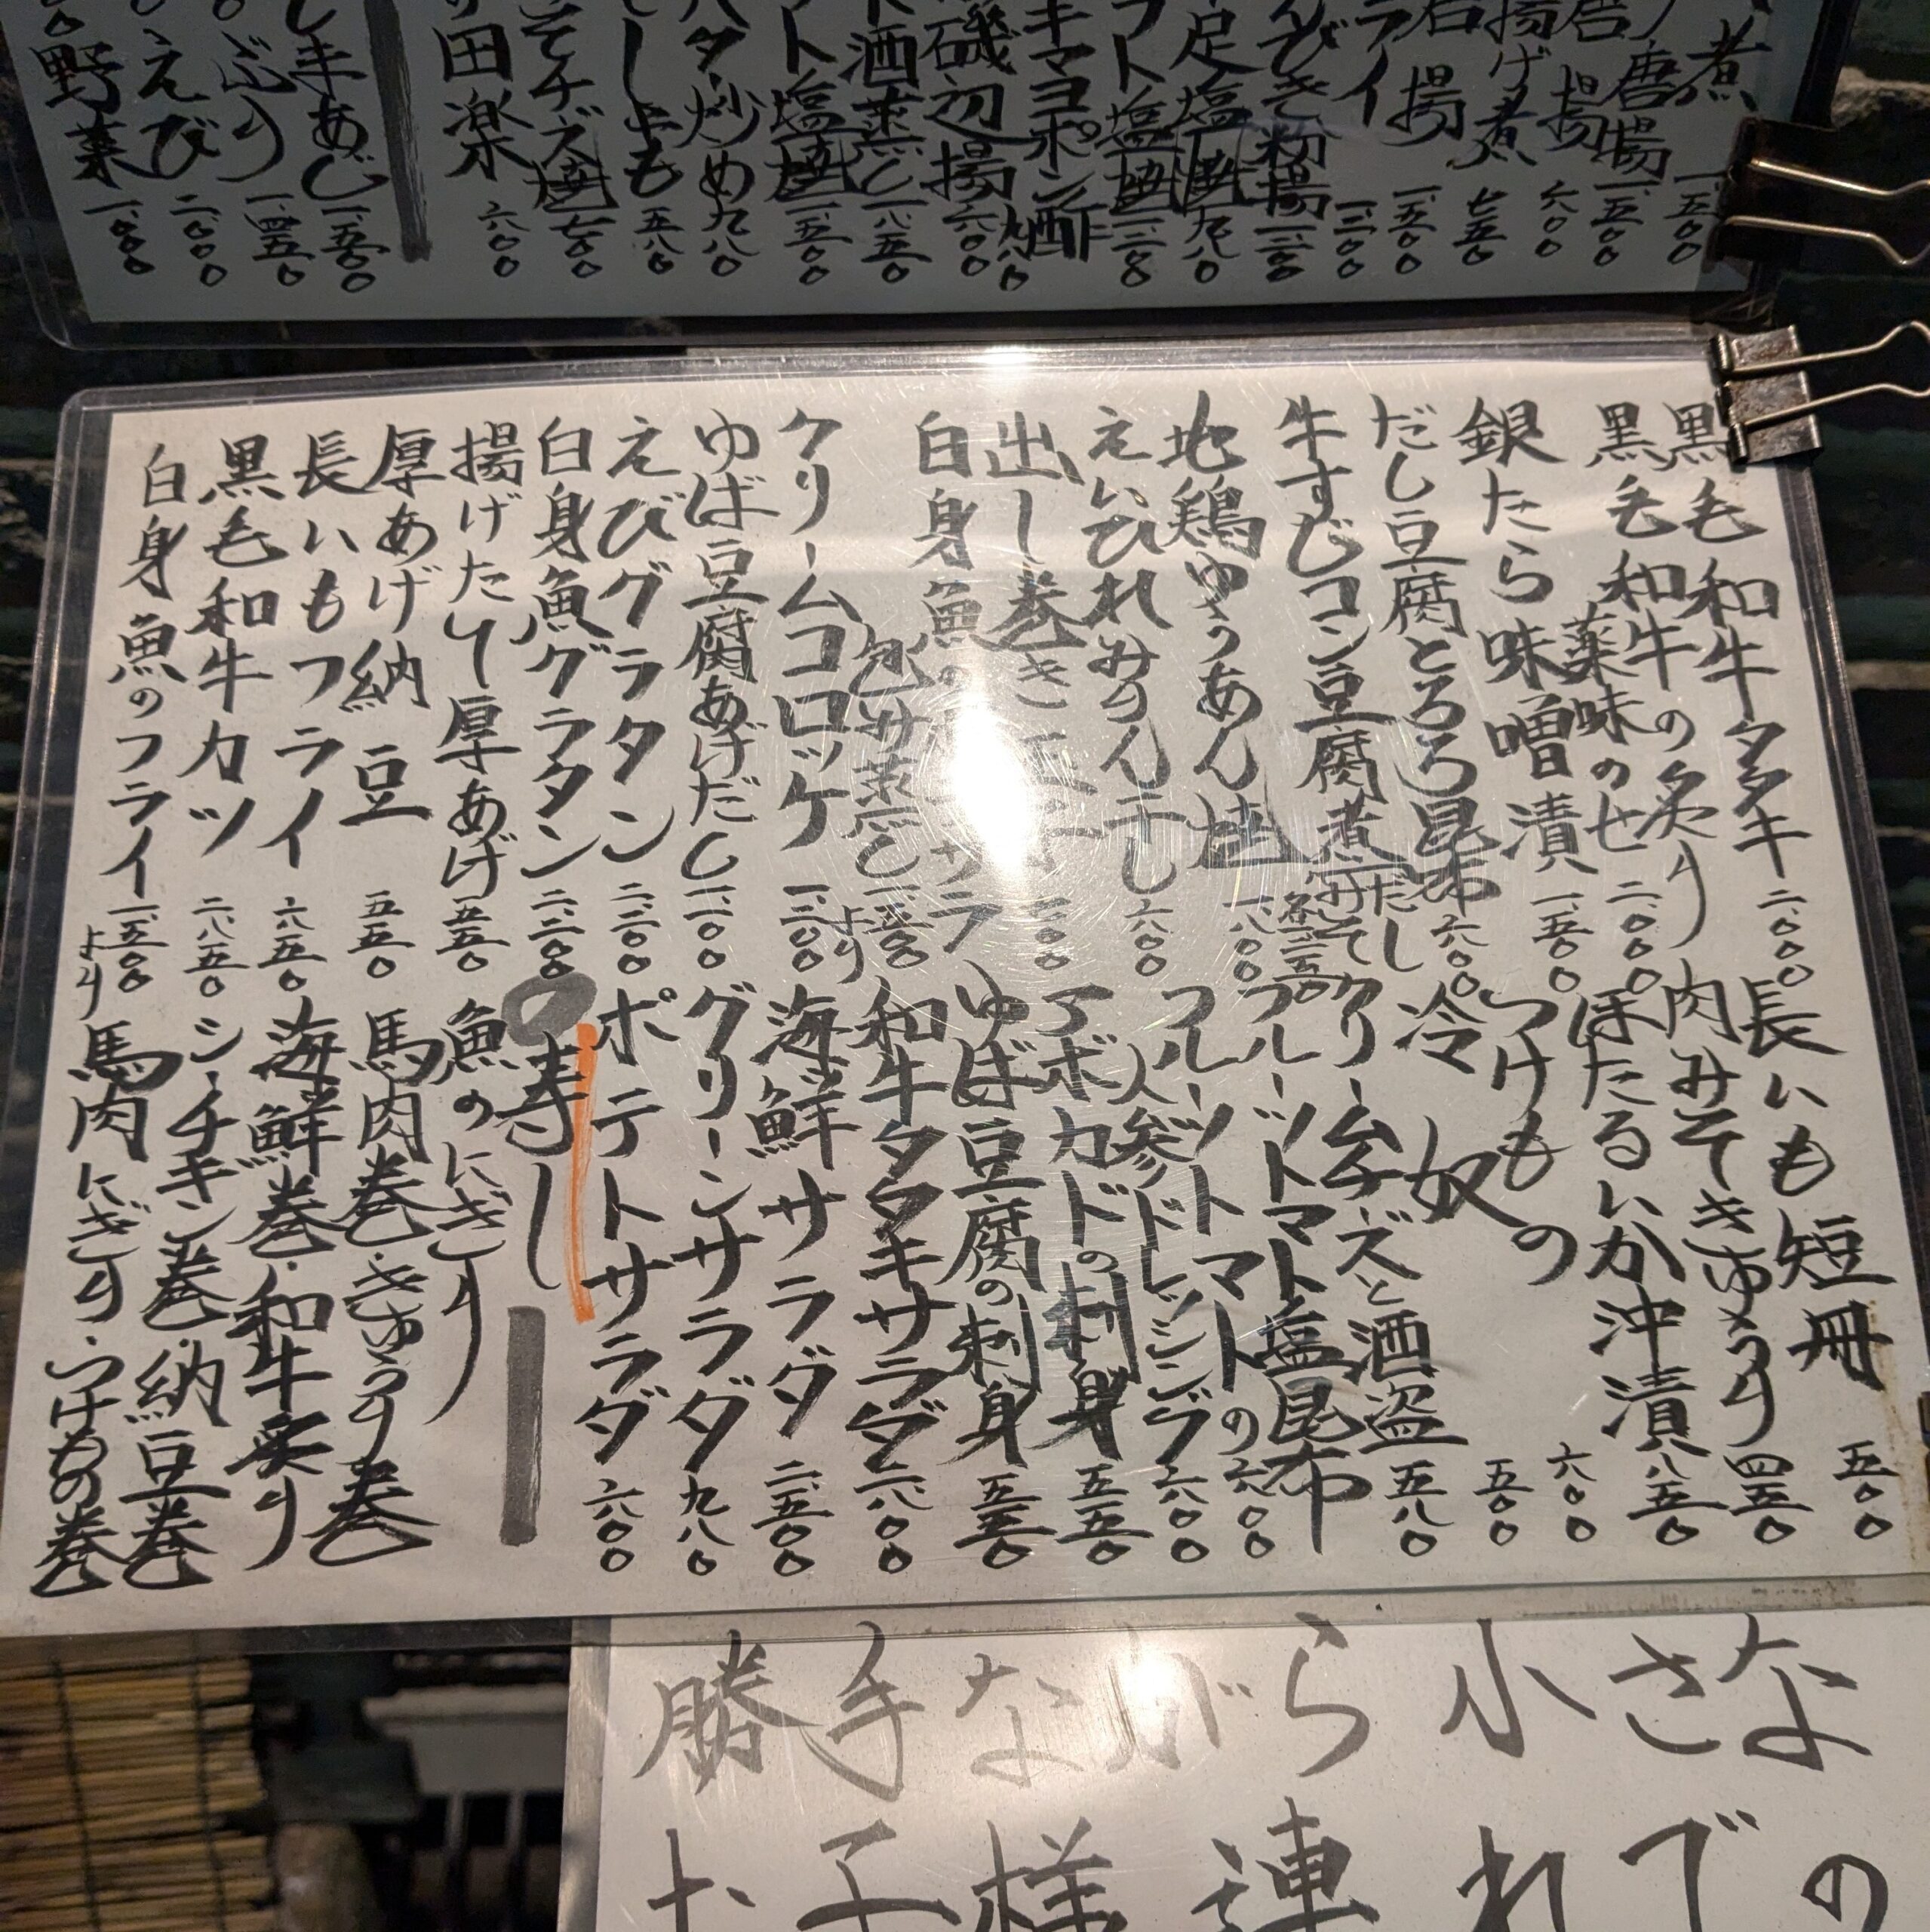 煮 一、五〇〇
唐揚 一、五〇〇
唐揚 六〇〇
揚げ煮 七五〇
揚 一、五〇〇
ライ 一、三〇〇
びき粉揚
足塩焼 九八〇
フト塩焼
キマヨポン酢
磯辺揚 六〇〇
酒蒸し 一、八五〇
ト塩焼 一、五〇〇
バター炒め 九八〇
五八〇
みそチーズ焼 七五〇
田楽 六〇〇
あじ 一、五〇〇
ぶり 一、四五〇
えび 二、〇〇〇
野菜 一、〇〇〇
黒毛和牛タタキ 二、〇〇〇
黒毛和牛の炙り
薬味のせ 二、〇〇〇
銀たら味噌漬 一、五〇〇
だし豆腐とろろ昆布だし 六〇〇
牛すじコン豆腐煮
地鶏ゆうあん焼 一、八〇〇
えいひれみりん干し 六〇〇
出し巻き
白身魚の
包み蒸し 一、五〇〇より
クリームコロッケ 一、三〇〇
ゆば豆腐あげだし 一、二〇〇
えびグラタン 二、二〇〇
白身魚グラタン 二、二〇〇
揚げたて厚あげ 五五〇
厚あげ納豆 五五〇
長いもフライ 六五〇
黒毛和牛カツ 二、八五〇
白身魚のフライ 一、五〇〇より
長いも短冊 五〇〇
肉みそきゅうり 四五〇
ほたるいか沖漬 八五〇
つけもの 六〇〇
冷奴 五〇〇
クリームチーズと酒盗 五八〇
フルーツトマト塩昆布
フルーツトマトの 六〇〇
人参ドレッシング 六〇〇
アボカドの刺身 五五〇
ゆば豆腐の刺身
和牛タタキサラダ 二、八〇〇
海鮮サラダ 二、五〇〇
グリーンサラダ 九八〇
ポテトサラダ 六〇〇
寿し
魚のにぎり
馬肉巻・きゅうり巻
海鮮巻・和牛炙り
シーチキン巻・納豆巻
馬肉にぎり・つけもの巻
勝手ながら小さな
お子様連れでの